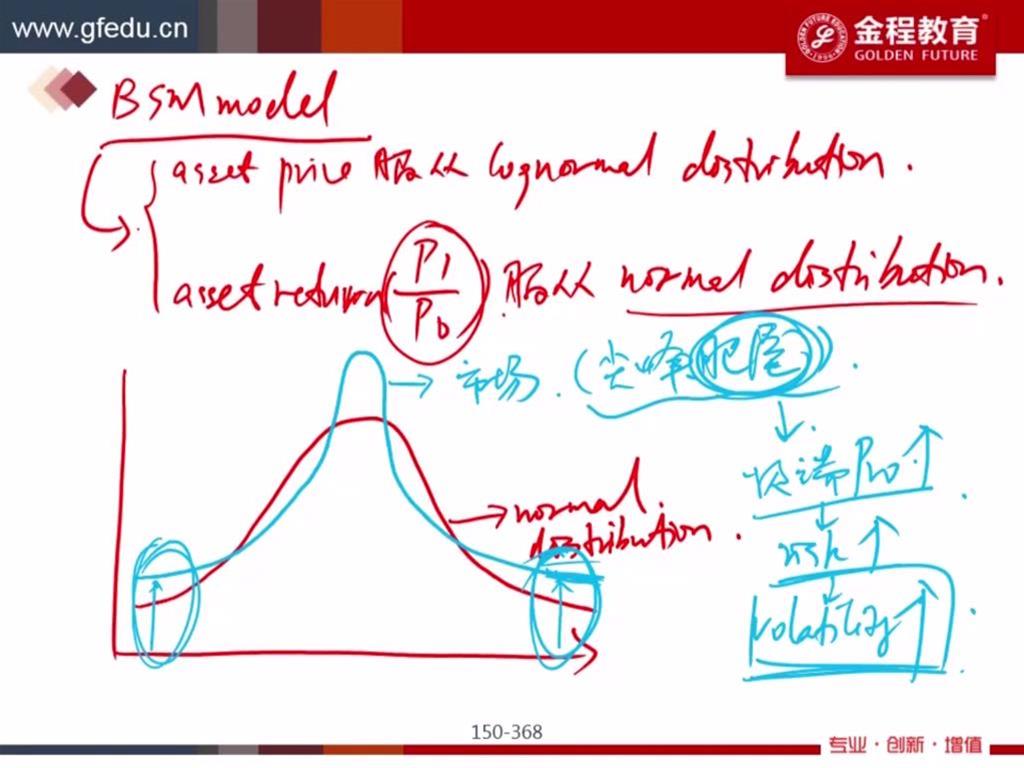 www.gfedu.cn
金程教育
GOLDEN FUTURE
BSM model
asset price 服从 lognormal distribution.
asset return (P1/P0) 服从 normal distribution.
市场. (尖峰肥尾).
极端 Pro↑
risk ↑
volatility↑
normal
distribution.
150-368
专业·创新·增值